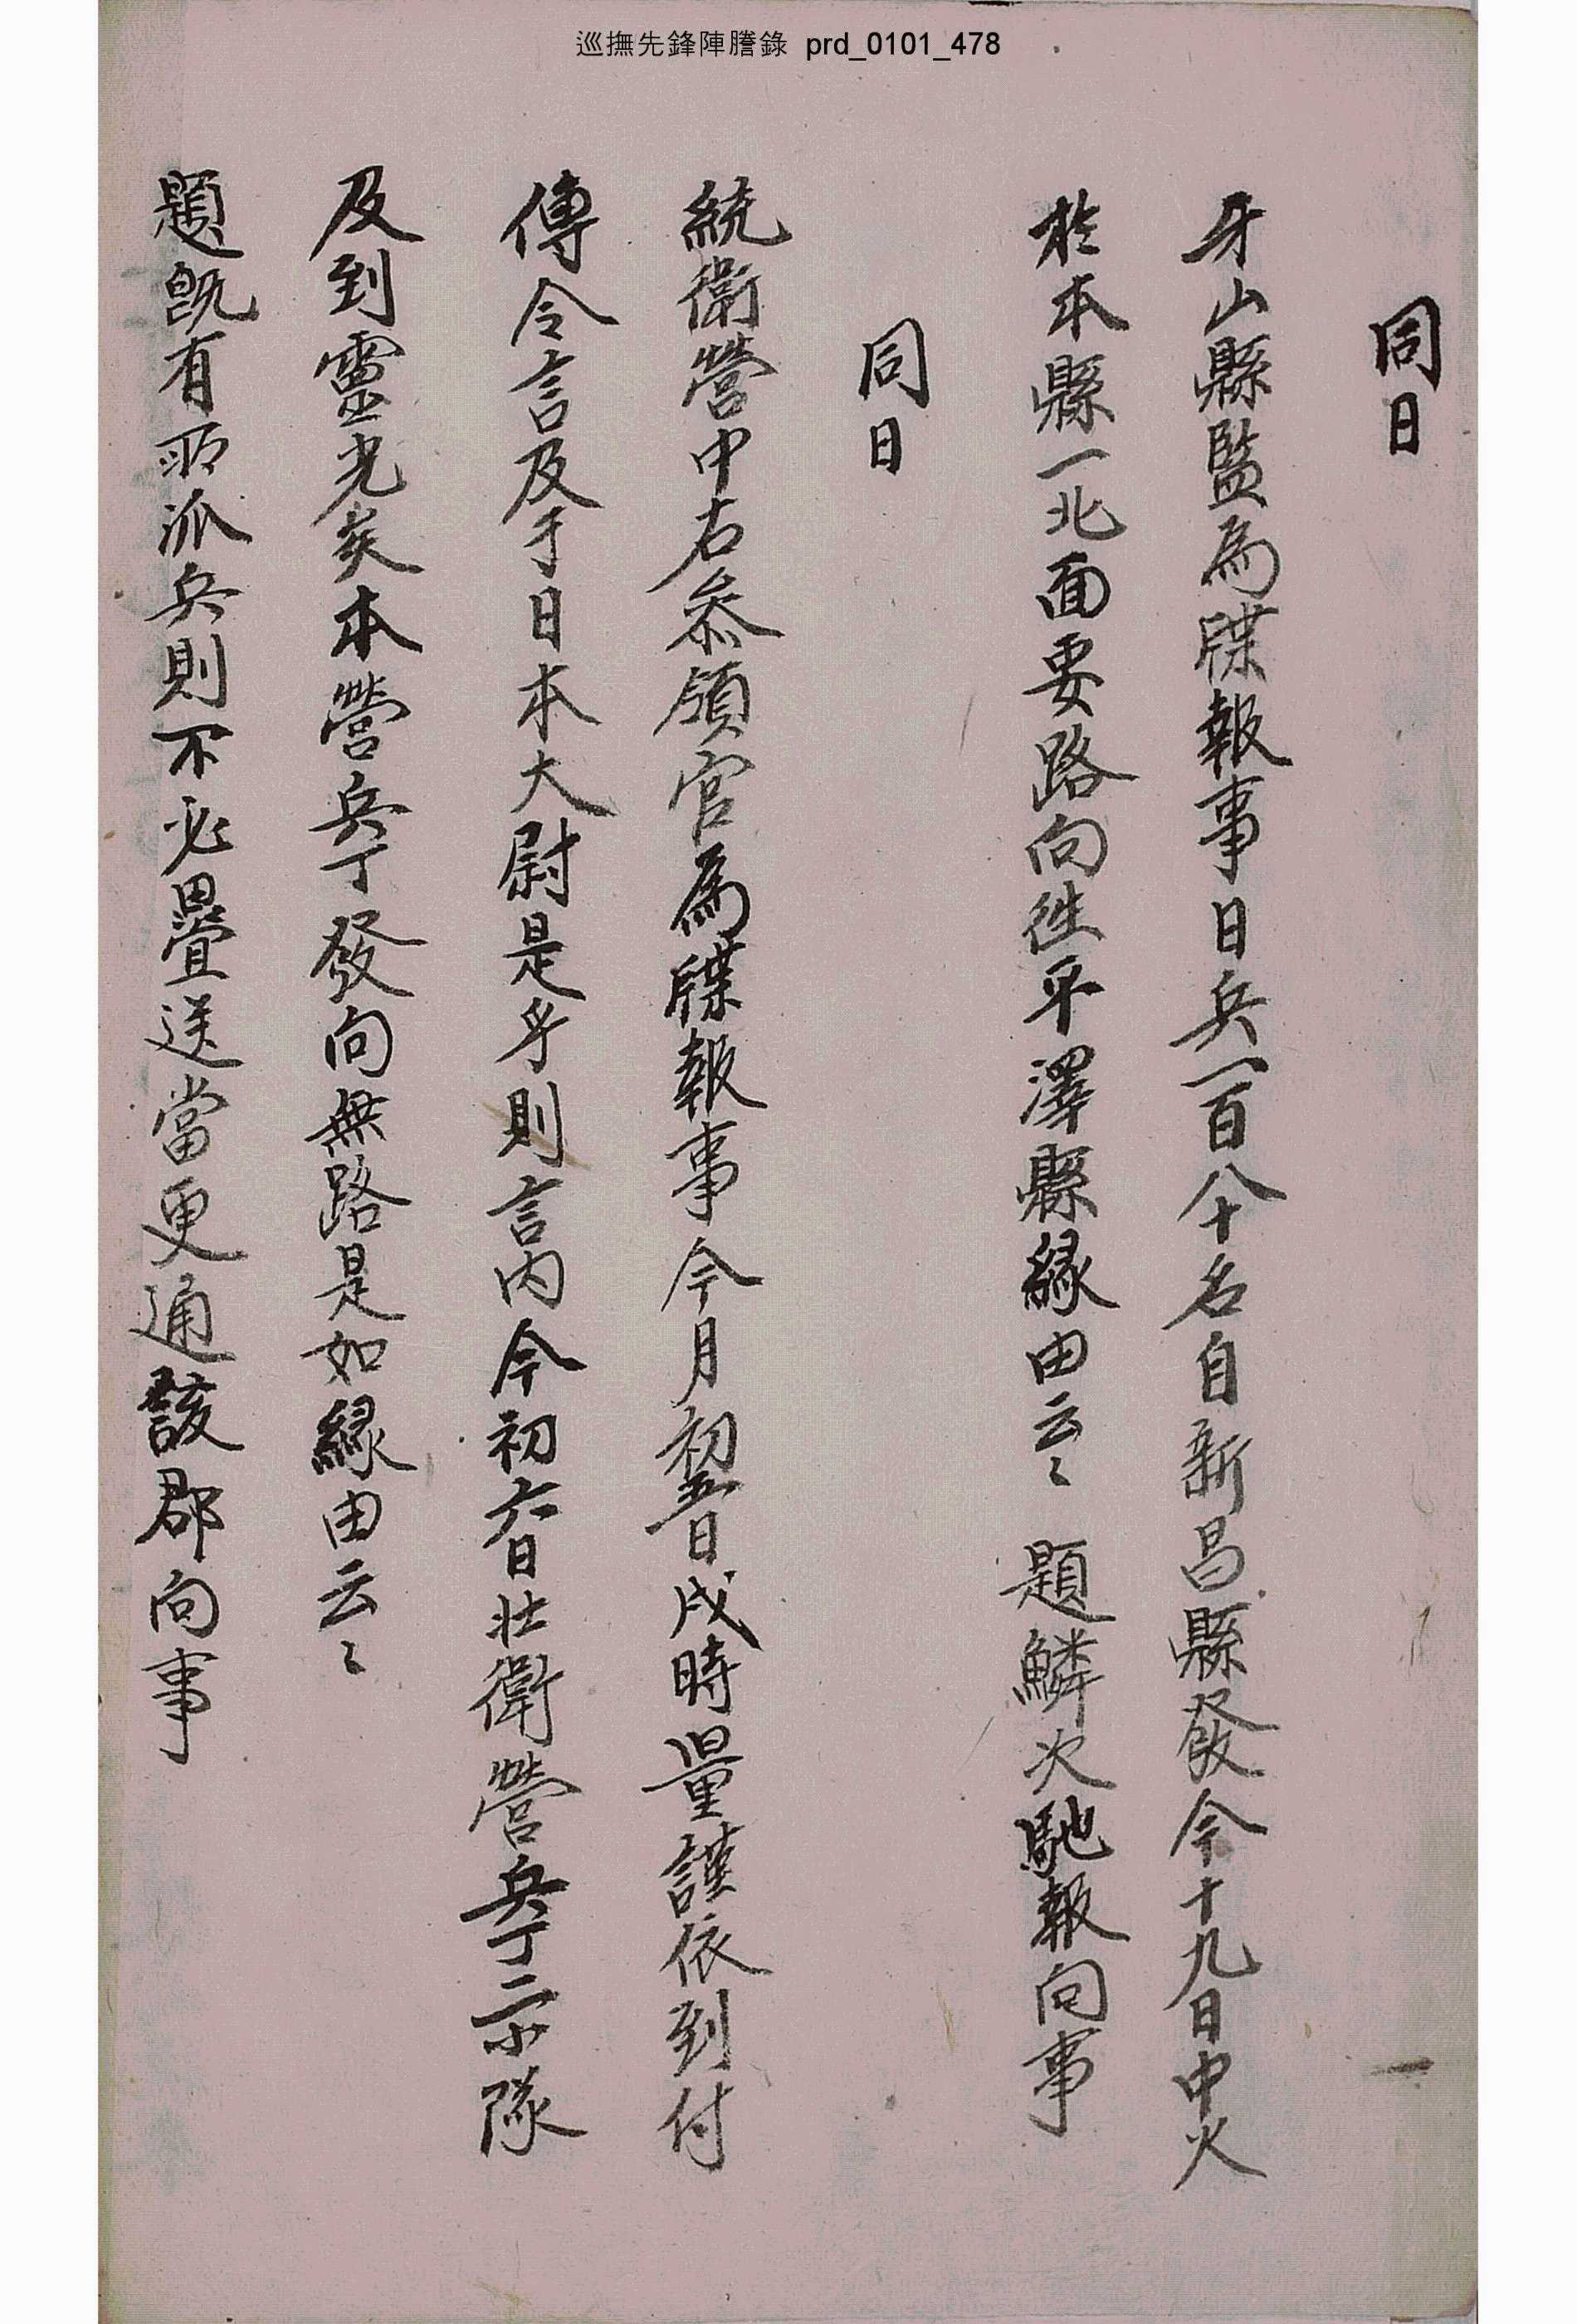 巡撫先鋒陣謄錄 prd_0101_478
同日
牙山縣監為牒報事日兵一百八十名自新昌縣發今十九日中火
於本縣一北面要路向徃平澤縣緣由云〻 題鱗次馳報向事
同日
統衛營中右叅領官為牒報事今月初五日戌時量謹依到付
傳令言及于日本大尉是乎則言內今初六日壯衛營兵丁二小隊
及到靈光矣本營兵丁發向無路是如緣由云〻
題旣有所派兵則不必疊送當更通該郡向事